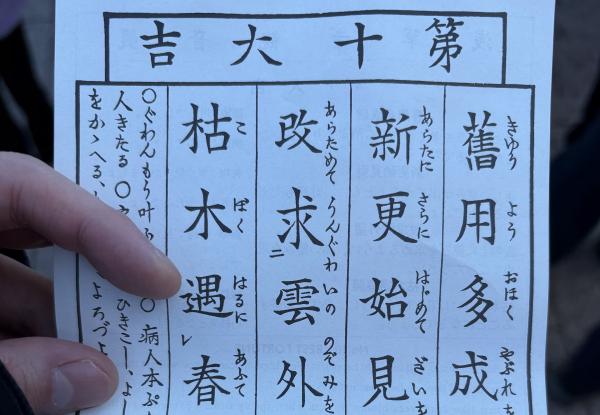 第十大吉
舊用多成
きゆう よう おほく やぶれを
新更始見
あらたに さらに はじめて ざいを
改求雲外
あらためて うんぐわ いの のぞみを
枯木遇春
こ ぼく はるに あふて
〇ぐわんもう叶
〇 病人本ぷ
人きたる 〇
ひきこし、よ
をかゝへる、
よろづよ